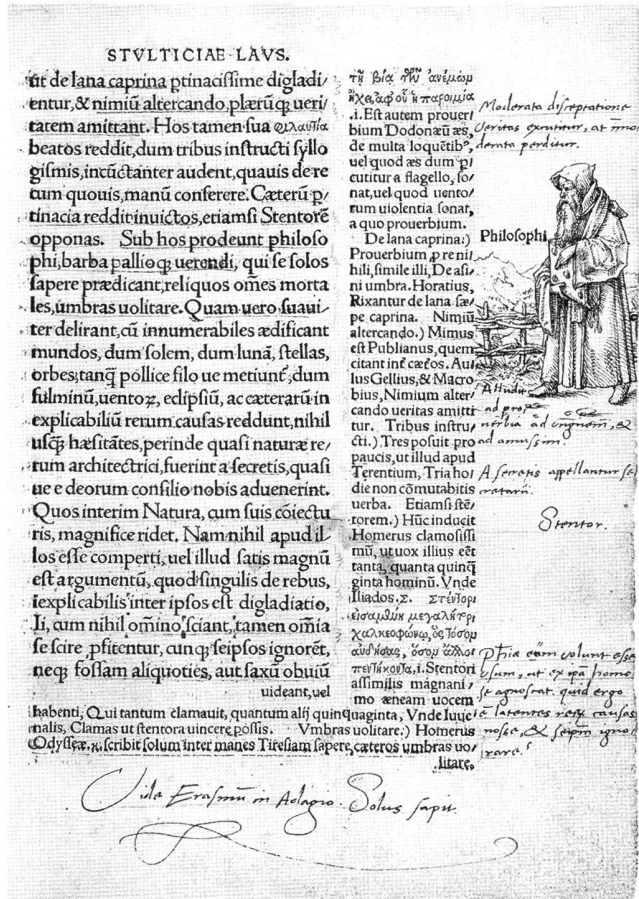 STVLTICIAE LAVS.
ut de lana caprina ꝑtinacissime digladi/
entur, & nimiũ altercando, plærũq; ueri/
tatem amittant. Hos tamen sua φιλαυτία
beatos reddit, dum tribus instructi syllo
gismis, incũctanter audent, quauis de re
cum quouis, manũ conserere. Cæterũ ꝑ/
tinacia reddit inuictos, etiamsi Stentorẽ
opponas. Sub hos prodeunt philoso
phi, barba pallioq; uerendi, qui se solos
sapere prædicant, reliquos oẽs morta
les, umbras uolitare. Quam uero suaui/
ter delirant, cũ innumerabiles ædificant
mundos, dum solem, dum lunã, stellas,
orbes, tanq̃ pollice filo ue metiunt̃, dum
fulminũ, uentoꝝ, eclipsiũ, ac cæterarũ in
explicabiliũ rerum causas reddunt, nihil
usq̃ hæsitãtes, perinde quasi naturæ re/
rum architectrici, fuerint a secretis, quasi
ue e deorum consilio nobis aduenerint.
Quos interim Natura, cum suis cõiectu
ris, magnifice ridet. Nam nihil apud il/
los esse comperti, uel illud satis magnũ
est argumentũ, quod singulis de rebus,
iexplicabilis inter ipsos est digladiatio,
Ii, cum nihil om̃ino sciant, tamen om̃ia
se scire ꝓfitentur, cunq; seipsos ignorẽt,
neq; fossam aliquoties, aut saxũ obuiũ
uideant, uel
τῇ βίᾳ τῶν ἀνέμων
ἤχει, ἀφ' οὗ ἡ παροιμία
.i. Est autem prouer/
bium Dodonæũ æs,
de multa loquẽtibꝰ,
uel quod æs dum ꝑ/
cutitur a flagello, so/
nat, uel quod uento/
rum uiolentia sonat,
a quo prouerbium.
De lana caprina:)
Prouerbium ꝓ re ni
hili, simile illi, De asi/
ni umbra. Horatius,
Rixantur de lana sæ/
pe caprina. Nimiũ
altercando.) Mimus
est Publianus, quem
citant int̃ cæt̃os. Au/
lus Gellius, & Macro
bius, Nimium alter/
cando ueritas amitti
tur. Tribus instru/
cti.) Tres posuit pro
paucis, ut illud apud
Terentium, Tria ho/
die non cõmutabitis
uerba. Etiamsi stẽ/
torem.) Hũc inducit
Homerus clamosissi
mũ, ut uox illius eẽt
tanta, quanta quinq̃
ginta hominũ. Vnde
Iliados. Σ. Στέντορι
εἰσαμένη μεγαλήτορι
χαλκεοφώνῳ, ὃς τόσον
αὐδήσασχ', ὅσον ἄλλοι
πεντήκοντα, .i. Stentori
assimilis magnani/
mo æneam uocem
habenti, Qui tantum clamauit, quantum alij quinquaginta, Vnde Iuue/
nalis, Clamas ut stentora uincere possis. Vmbras uolitare.) Homerus
Odysseæ. κ. scribit solum inter manes Tiresiam sapere, cæteros umbras uo/
litare.
Moderata disceptatione
Veritas excutitur, at immo
derata perditur.
Philosophi
Alludit
ad prouerbia ad unguem, &
ad amussim.
A secretis appellantur se
cretarii.
Stentor.
volunt esse
ut ex homo
se agnoscat. quid ergo
latentes causas
nosse, & seipm igno
rare?
Vide Erasmũ in Adagio. Solus sapit.